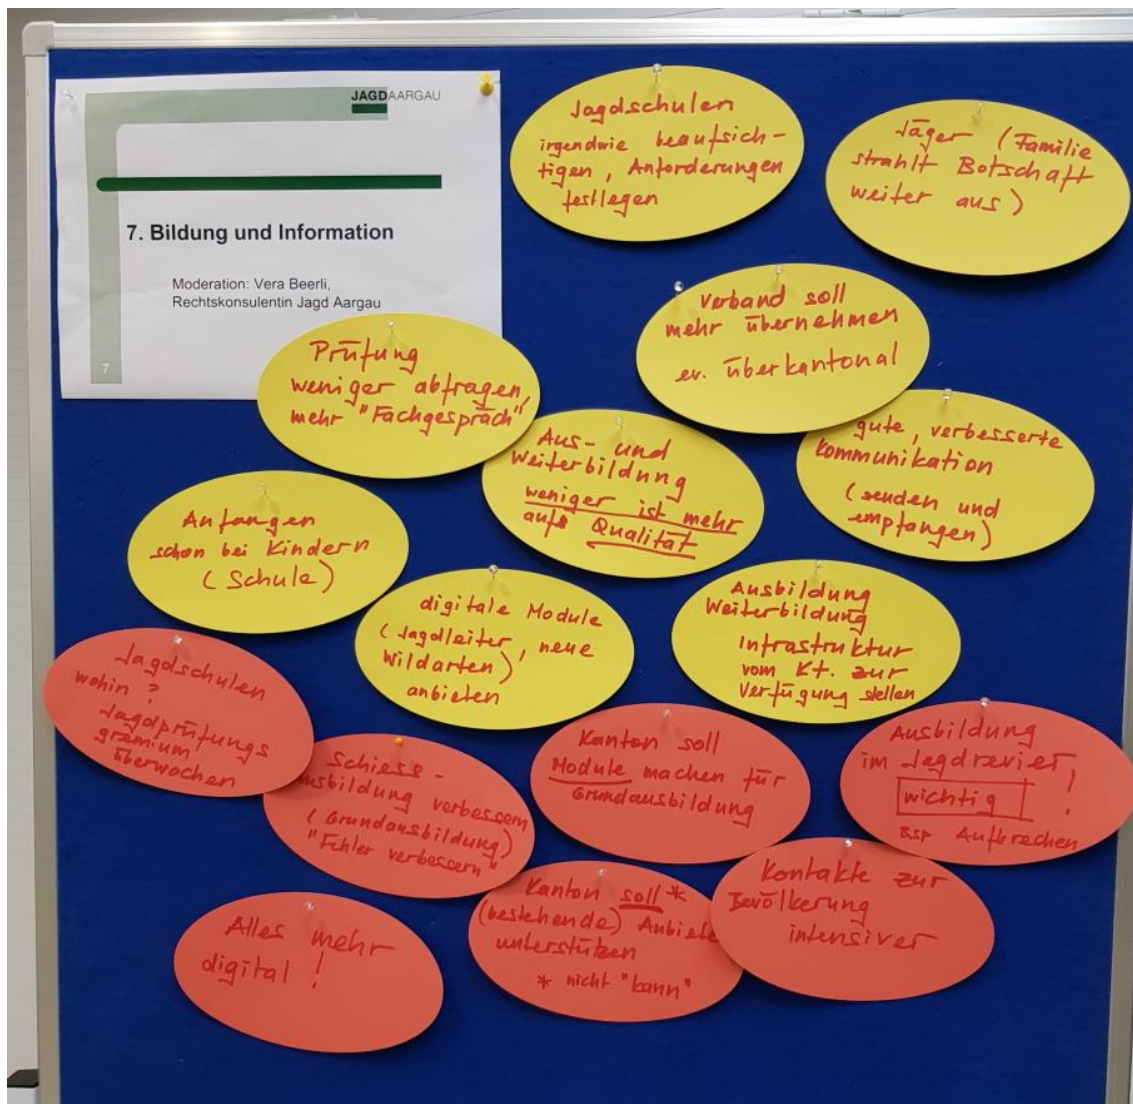 JAGDAARGAU
7. Bildung und Information
Moderation: Vera Beerli,
Rechtskonsulentin Jagd Aargau
7
Jagdschulen
irgendwie beaufsich-
tigen, Anforderungen
festlegen
Jäger (Familie
strahlt Botschaft
weiter aus)
Verband soll
mehr übernehmen
ev. überkantonal
Prüfung
weniger abfragen,
mehr "Fachgespräch"
Aus- und
Weiterbildung
weniger ist mehr
aufs Qualität
gute, verbesserte
Kommunikation
(senden und
empfangen)
Anfangen
schon bei Kindern
(Schule)
digitale Module
(Jagdleiter, neue
Wildarten)
anbieten
Ausbildung
Weiterbildung
Infrastruktur
vom Kt. zur
Verfügung stellen
Jagdschulen
wohin?
Jagdprüfungs
gremium
überwachen
Schiess-
ausbildung verbessern
(Grundausbildung)
"Fehler verbessern"
Kanton soll
Module machen für
Grundausbildung
Ausbildung
im Jagdrevier!
wichtig !
Bsp Aufbrechen
Alles mehr
digital!
Kanton soll *
(bestehende) Anbiete
unterstützen
* nicht "kann"
Kontakte zur
Bevölkerung
intensiver